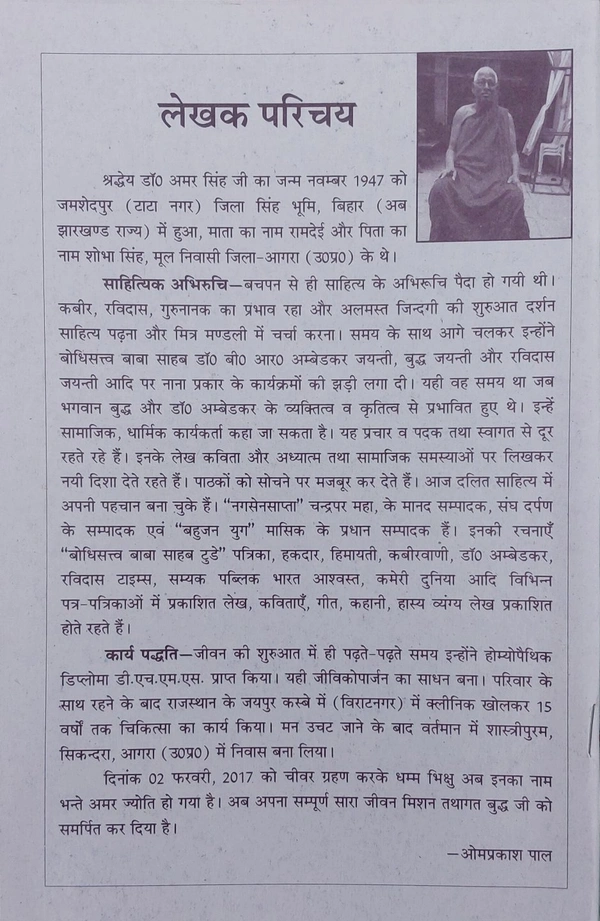 लेखक परिचय
श्रद्धेय डॉ0 अमर सिंह जी का जन्म नवम्बर 1947 को
जमशेदपुर (टाटा नगर) जिला सिंह भूमि, बिहार (अब
झारखण्ड राज्य) में हुआ, माता का नाम रामदेई और पिता का
नाम शोभा सिंह, मूल निवासी जिला-आगरा (उ0प्र0) के थे।
साहित्यिक अभिरुचि—बचपन से ही साहित्य के अभिरूचि पैदा हो गयी थी।
कबीर, रविदास, गुरुनानक का प्रभाव रहा और अलमस्त जिन्दगी की शुरुआत दर्शन
साहित्य पढ़ना और मित्र मण्डली में चर्चा करना। समय के साथ आगे चलकर इन्होंने
बोधिसत्त्व बाबा साहब डॉ0 बी0 आर0 अम्बेडकर जयन्ती, बुद्ध जयन्ती और रविदास
जयन्ती आदि पर नाना प्रकार के कार्यक्रमों की झड़ी लगा दी। यही वह समय था जब
भगवान बुद्ध और डॉ0 अम्बेडकर के व्यक्तित्व व कृतित्व से प्रभावित हुए थे। इन्हें
सामाजिक, धार्मिक कार्यकर्ता कहा जा सकता है। यह प्रचार व पदक तथा स्वागत से दूर
रहते रहे हैं। इनके लेख कविता और अध्यात्म तथा सामाजिक समस्याओं पर लिखकर
नयी दिशा देते रहते हैं। पाठकों को सोचने पर मजबूर कर देते हैं। आज दलित साहित्य में
अपनी पहचान बना चुके हैं। “नगसेनसाप्ता” चन्द्रपर महा, के मानद सम्पादक, संघ दर्पण
के सम्पादक एवं “बहुजन युग” मासिक के प्रधान सम्पादक हैं। इनकी रचनाएँ
“बोधिसत्त्व बाबा साहब टुडे” पत्रिका, हकदार, हिमायती, कबीरवाणी, डॉ0 अम्बेडकर,
रविदास टाइम्स, सम्यक पब्लिक भारत आश्वस्त, कमेरी दुनिया आदि विभिन्न
पत्र-पत्रिकाओं में प्रकाशित लेख, कविताएँ, गीत, कहानी, हास्य व्यंग्य लेख प्रकाशित
होते रहते हैं।
कार्य पद्धति—जीवन की शुरुआत में ही पढ़ते-पढ़ते समय इन्होंने होम्योपैथिक
डिप्लोमा डी.एच.एम.एस. प्राप्त किया। यही जीविकोपार्जन का साधन बना। परिवार के
साथ रहने के बाद राजस्थान के जयपुर कस्बे में (विराटनगर) में क्लीनिक खोलकर 15
वर्षों तक चिकित्सा का कार्य किया। मन उचट जाने के बाद वर्तमान में शास्त्रीपुरम,
सिकन्दरा, आगरा (उ0प्र0) में निवास बना लिया।
दिनांक 02 फरवरी, 2017 को चीवर ग्रहण करके धम्म भिक्षु अब इनका नाम
भन्ते अमर ज्योति हो गया है। अब अपना सम्पूर्ण सारा जीवन मिशन तथागत बुद्ध जी को
समर्पित कर दिया है।
—ओमप्रकाश पाल